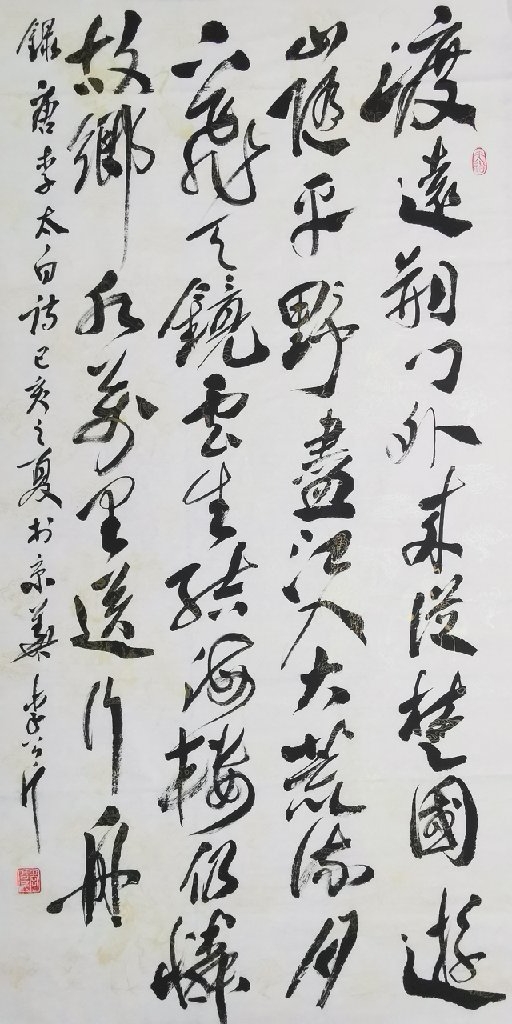 渡遠荊門外來從楚國遊
山隨平野盡江入大荒流月
下飛天鏡雲生結海樓仍憐
故鄉水萬里送行舟
錄唐李太白詩己亥之夏於京華李